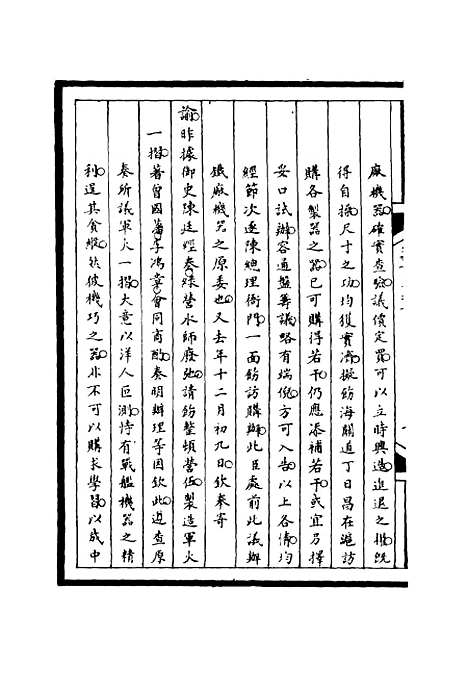 廠機器確實查驗議價定買可以立時興造進退之權既
得自操尺寸之功均獲實濟擬飭海關道丁日昌在滬訪
購各製器之器已可購得若干仍應添補若干或宜另擇
妥口試辦容通盤籌議略有端倪方可入告以上各情均
經節次逐陳總理衙門一面飭訪購辦此臣處前此議辦
鐵廠機器之原委也又去年十二月初九日欽奉寄
諭昨據御史陳廷經奏綠營水師廢弛請飭整頓營伍製造軍火
一摺著曾國藩李鴻章會同商酌奏明辦理等因欽此遵查原
奏所議軍火一摺大意以洋人叵測恃有戰艦機器之精
利逞其貪縱然彼機巧之器非不可以購求學習以成中